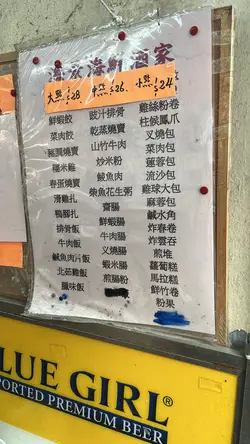 海鮮酒家
大點$28. 中點$26. 小點$24
鮮蝦餃 豉汁排骨 雞絲粉卷
菜肉餃 乾蒸燒賣 柱候鳳爪
山竹牛肉 叉燒包
糯米雞 炒米粉 菜肉包
春蛋燒賣 鹹魚肉 蓮蓉包
滑雞扎 柴魚花生粥 流沙包
鴨腳扎 齋腸 雞球大包
排骨飯 鮮蝦腸 麻蓉包
牛肉飯 牛肉腸 鹹水角
鹹魚肉片飯 叉燒腸 炸春卷
北菇雞飯 蝦米腸 炸雲吞
臘味飯 煎腸粉 煎堆
蘿蔔糕
馬拉糕
鮮竹卷
粉果
LUE GIRL®
PORTED PREMIUM BEER